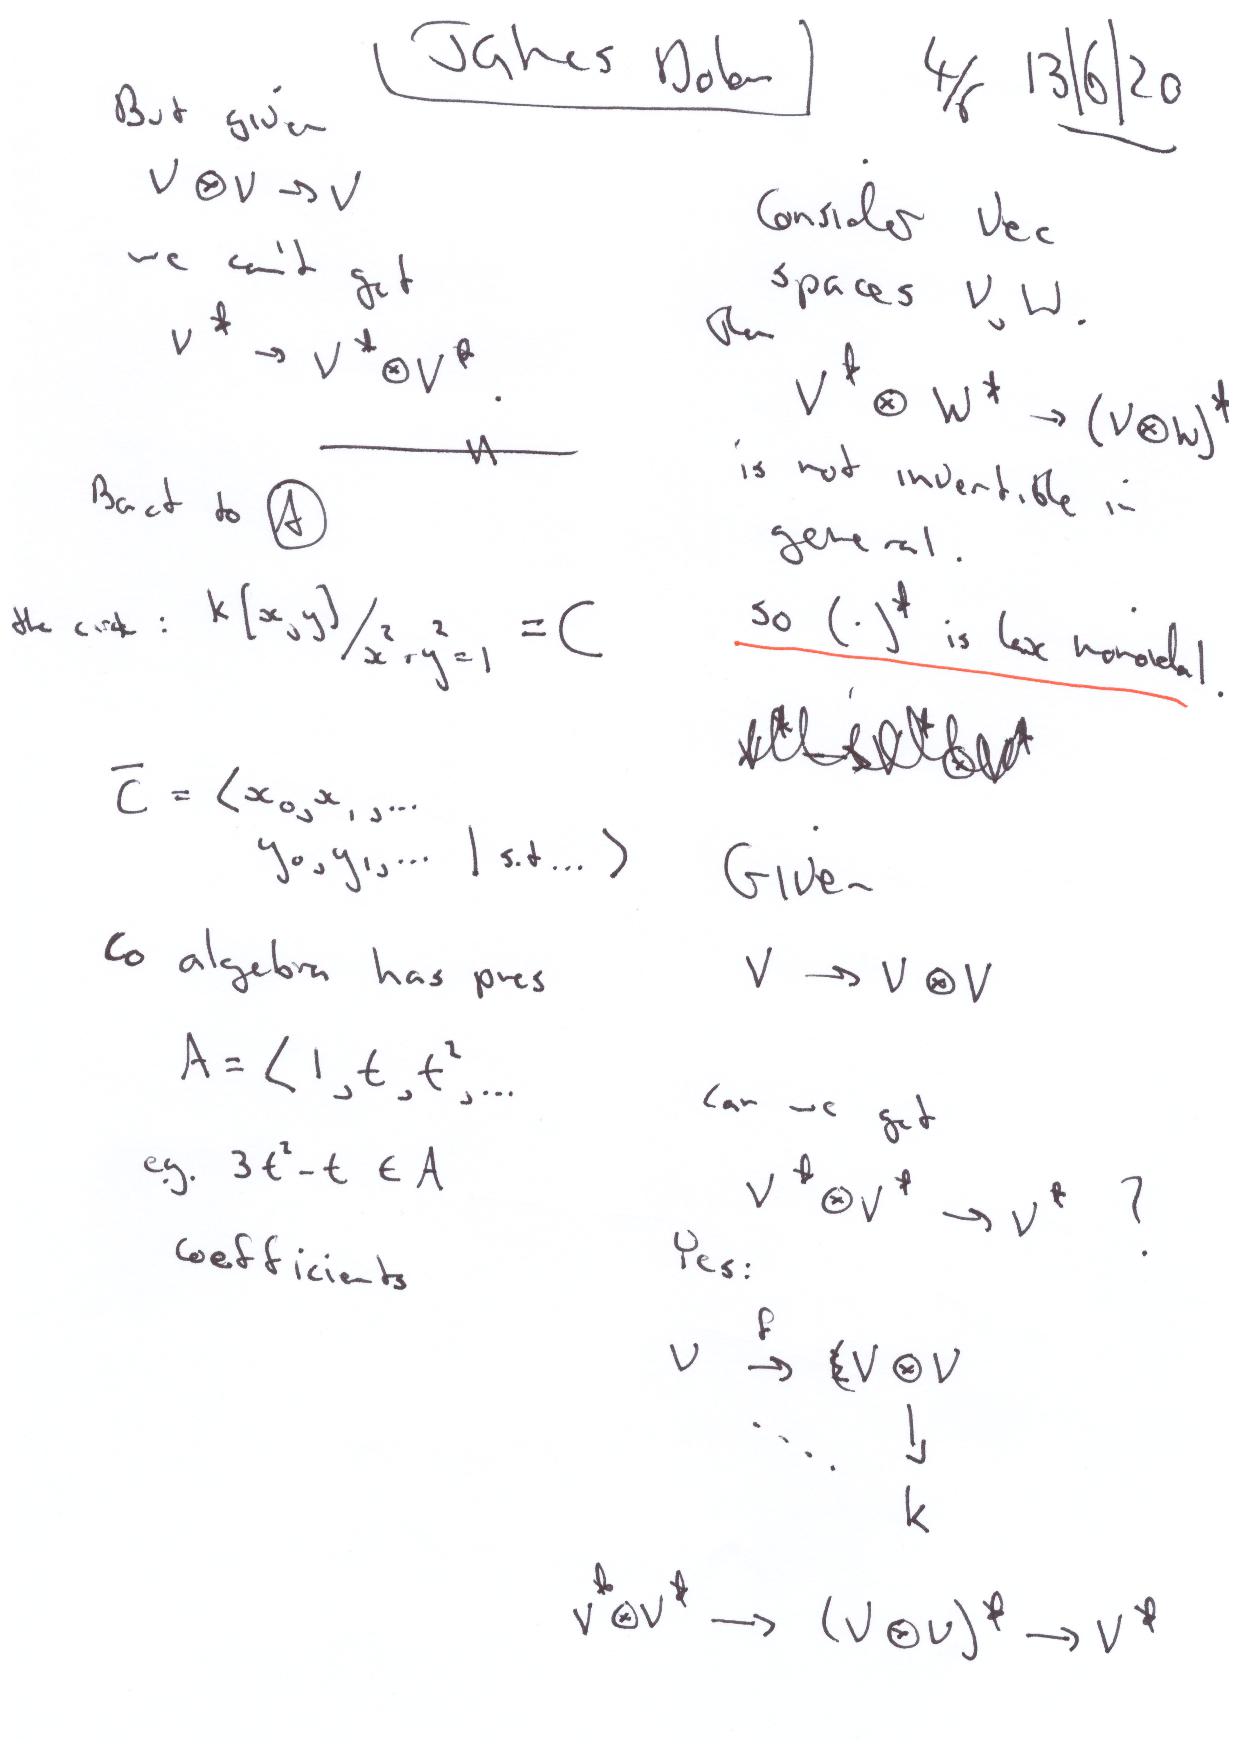 James Dolan
4/6 13/6/20
But given
V ⊗ V → V
we can't get
V* → V* ⊗ V*.
Back to Ⓐ
the circle: k[x,y]/x²+y²=1 = C
C̄ = ⟨x₀, x₁, ...
y₀, y₁, ... | s.t ... ⟩
Co algebra has pres
A = ⟨1, t, t², ...
eg. 3t² - t ∈ A
coefficients
Consider Vec
spaces V, W.
Then
V* ⊗ W* → (V ⊗ W)*
is not invertible in
general.
So (·)* is lax monoidal.
Given
V → V ⊗ V
can we get
V* ⊗ V* → V* ?
Yes:
V →f V ⊗ V
↓
k
V* ⊗ V* → (V ⊗ V)* → V*